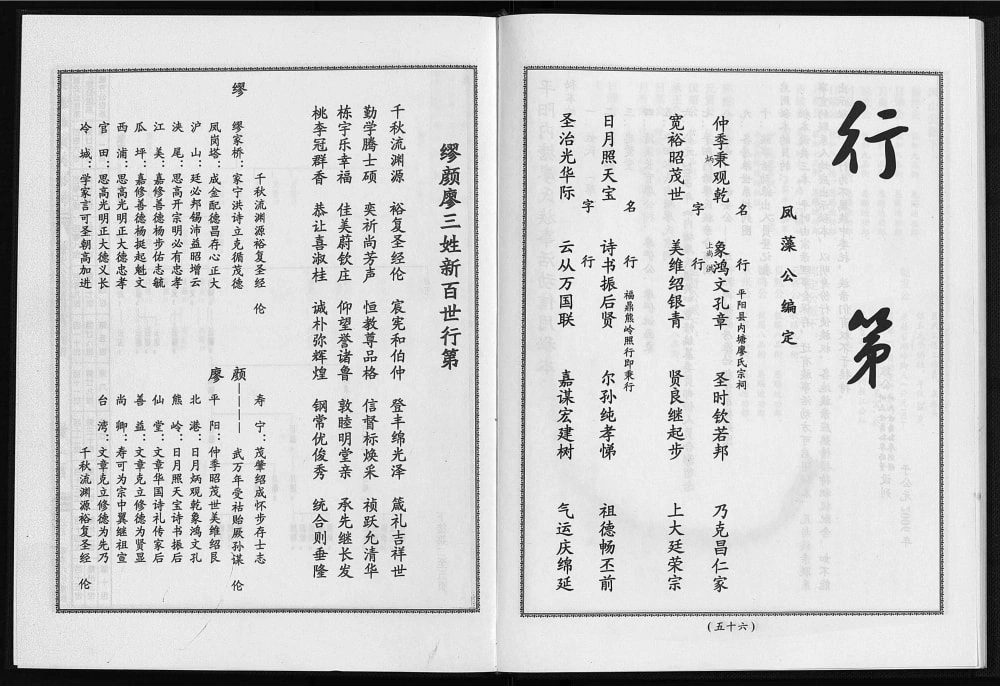 行第
凤藻公编定
名行 平阳县内塘廖氏宗祠
仲季秉观乾 象鸿文孔章 圣时钦若邦 乃克昌仁家
炳 上尚 洪
字行
宽裕昭茂世 美维绍银青 贤良继起步 上大廷荣宗
名行 福鼎熊岭照行即秉行
日月照天宝 诗书振后贤 尔孙纯孝悌 祖德畅丕前
字行
圣治光华际 云从万国联 嘉谋宏建树 气运庆绵延
（五十六）
缪颜廖三姓新百世行第
千秋流渊源 裕复圣经伦 宸宪和伯仲 登丰绵光泽 箴礼吉祥世
勤学腾士硕 奕祈尚芳声 恒教尊品格 信督标焕采 祯跃允清华
栋宇乐幸福 佳美蔚钦庄 仰望誉诸鲁 敦睦明堂亲 承先继长发
桃李冠群香 恭让喜淑桂 诚朴弥辉煌 钢常优俊秀 统合则垂隆
缪
千秋流渊源裕复圣经 伦
缪家桥：家宁洪诗立克循茂德
凤岗塔：成金配德昌存心正大
沪山：廷必邦锡沛益昭增云
浃尾：思高开宗明必有忠孝
江美：嘉修善德杨步佑志毓
瓜坪：嘉修善德杨挺起魁文
西浦：思高光明正大德忠孝
官田：思高光明正大德义长
冷城：学家言可圣朝高加进
寿宁：茂肇绍成怀步存士志
颜———— 武万年受祜贻厥孙谋 伦
廖 平阳：仲季昭茂世美维绍艮
北港：日月炳观乾象鸿文孔
熊岭：日月照天宝诗书振后
仙堂：文章华国诗礼传家后
善益：文章克立修德为贤显
尚卿：寿可为宗中翼继祖宣
台湾：文章克立修德为先乃
千秋流渊源裕复圣经 伦